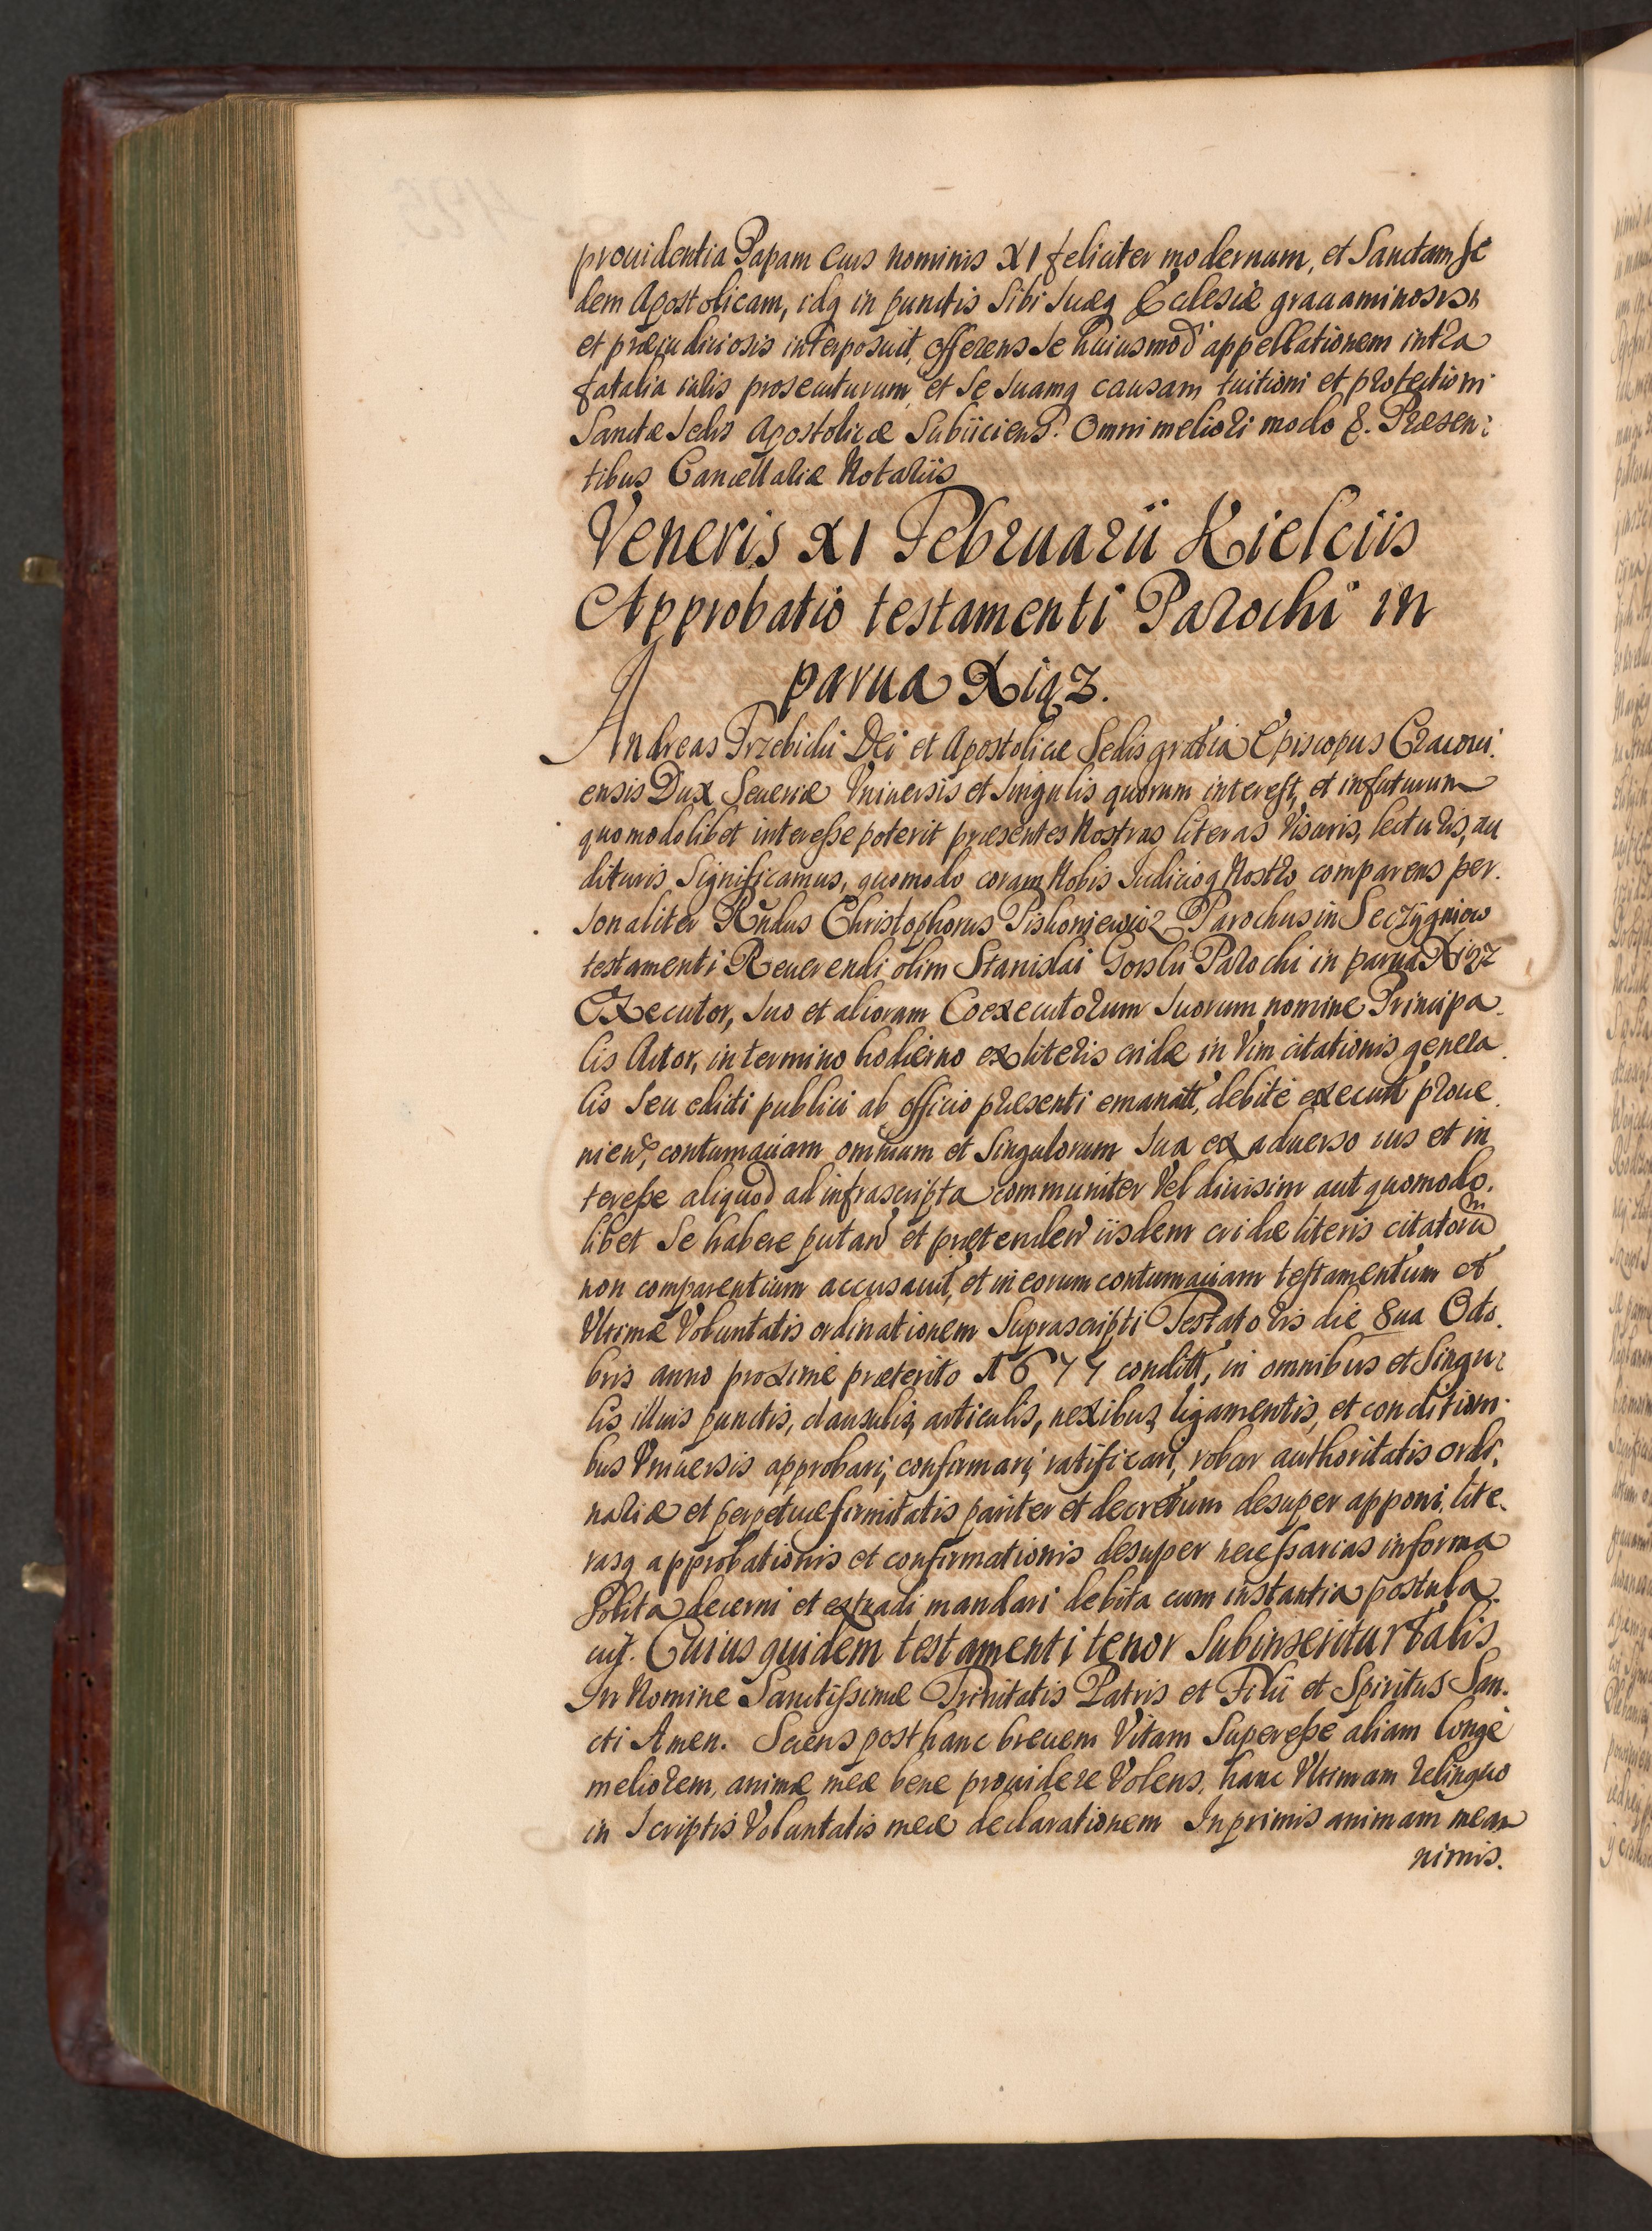 prouidentia Papam eius nominis XI feliciter modernum, et Sanctam Se
dem Apostolicam, idq in punctis sibi suæq Ecclesiæ grauaminosis
et præiudiciosis interposuit, offerens se huiusmod appellationem intra
fatalia iuris prosecuturum, et se suamq causam tuitioni et protectioni
Sanctæ Sedis Apostolicæ Subiiciens. Omni meliori modo &. Præsen:
tibus Cancellariæ Notariis
Veneris XI Februarii Kielciis
Approbatio testamenti Parochi in
parua Xiąz.
Andreas Trzebicki Dei et Apostolicæ Sedis gratia Episcopus Cracoui.
ensis Dux Seueriæ Vniuersis et Singulis quorum interest, et in futurum
quomodolibet interesse poterit præsentes Nostras literas Visuris, lecturis, au
dituris Significamus, quomodo coram Nobis Iudicioq Nostro comparens per.
sonaliter Rndus Christophorus Piskoniewicz Parochus in Seczygniow
testamenti Reuerendi olim Stanislai Gorski Parochi in parua Xiąz
Executor, suo et aliorum Coexecutorum suorum nomine Principa.
lis Actor, in termino hodierno ex literis cridæ in Vim citationis genera.
lis seu edicti publici ab officio præsenti emanatt, debite executt proue.
nien, contumaciam omnium et Singulorum sua ex aduerso ius et in
teresse aliquod ad infrascripta communiter Vel diuisim aut quomodo.
libet se habere putan et prætenden iisdem cridæ literis citatorum
non comparentium accusauit, et in eorum contumaciam testamentum et
Vltimæ Voluntatis ordinationem Suprascripti Testatoris die 8ua Octo.
bris anno proxime præterito 1677 conditt, in omnibus et Singu:
lis illius punctis, clausulis, articulis, nexibus, ligamentis, et conditioni.
bus Vniuersis approbari, confirmari, ratificari, robur authoritatis ordi.
nariæ et perpetuæ firmitatis pariter et decretum desuper apponi, lite.
rasq approbationis et confirmationis desuper necessarias in forma
Solita decerni et extradi mandari debita cum instantia postula.
uit. Cuius quidem testamenti tenor subinseritur talis
In Nomine Sanctissimæ Trinitatis Patris et Filii et Spiritus San.
cti Amen. Sciens post hanc breuem Vitam Superesse aliam longe
meliorem, animæ meæ bene prouidere Volens, hanc Vltimam relinquo
in Scriptis Voluntatis meæ declarationem Inprimis animam meam
nimis.